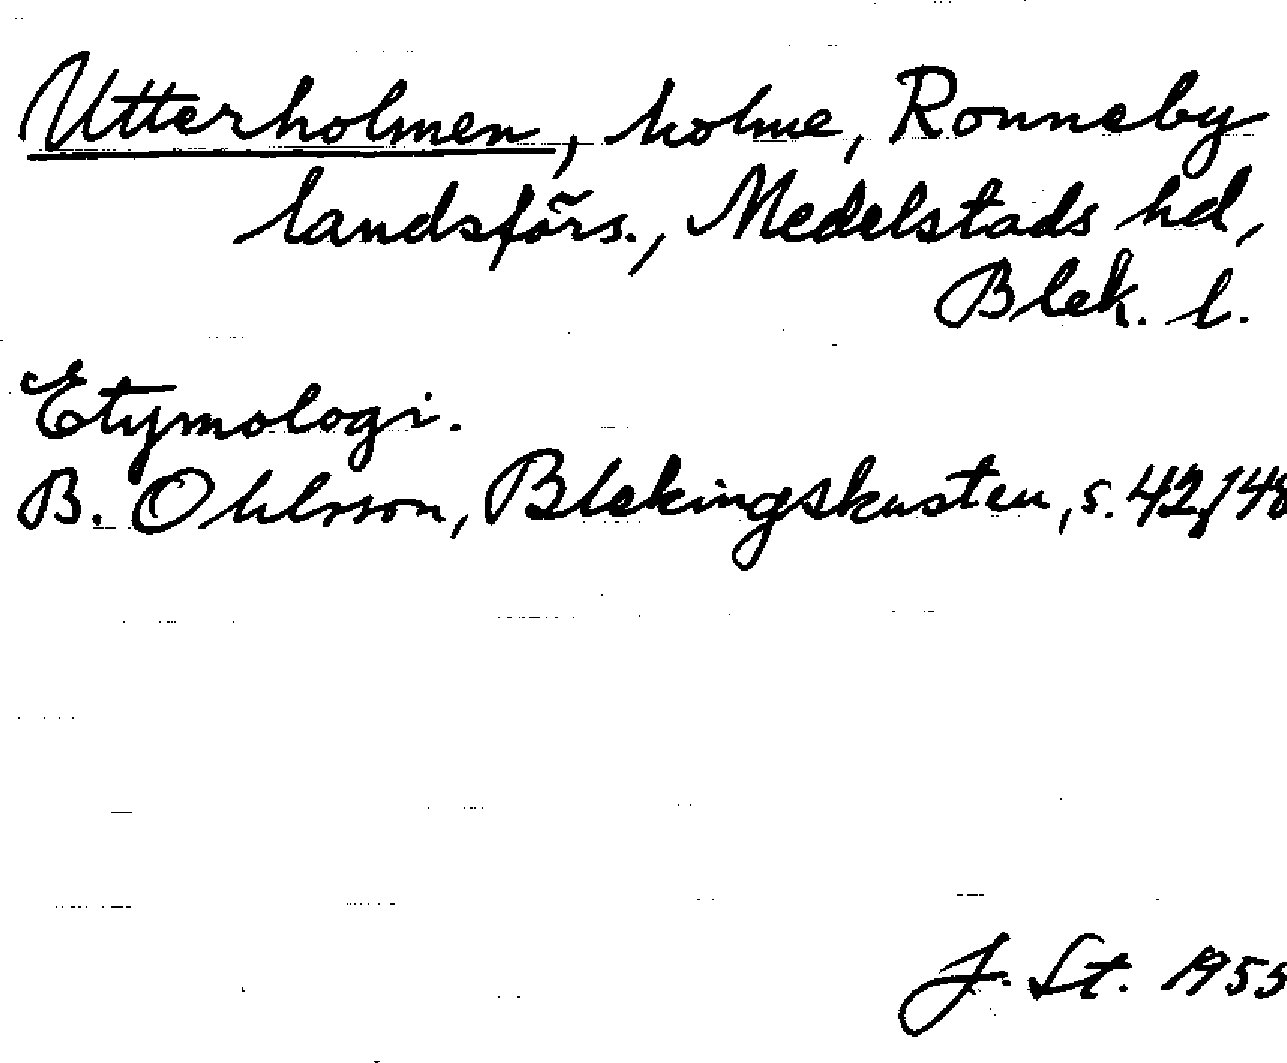 Utterholmen, holme, Ronneby
landsförs., Medelstads hd,
Blek. l.
Etymologi.
B. Ohlsson, Blekingskusten, s. 42, 148
J. St. 1955